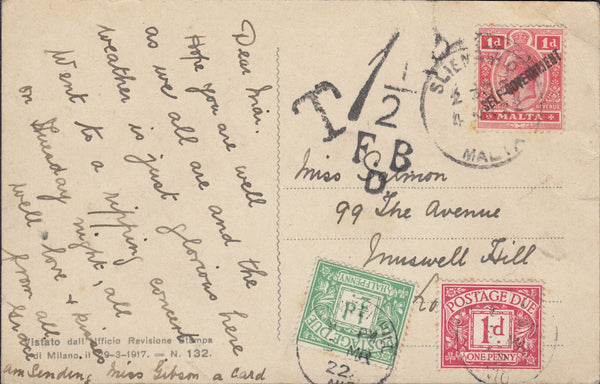 Dear Miss.
Hope you are well
as we all are and the
weather is just glorious here
Went to a ripping concert
on Tuesday night, all
well love & kisses
from all
am Sending Miss Gibson a card
Vistato dall'Ufficio Revisione Stampa
di Milano, il 29-3-1917. — N. 132.
1 1/2
T
F.B
SLIEMA
MALTA
1d 1d
SELF-GOVERNMENT
REVENUE
MALTA
Miss Salmon
99 The Avenue
Muswell Hill
HALFPENNY
22
POSTAGE DUE
1d
ONE PENNY